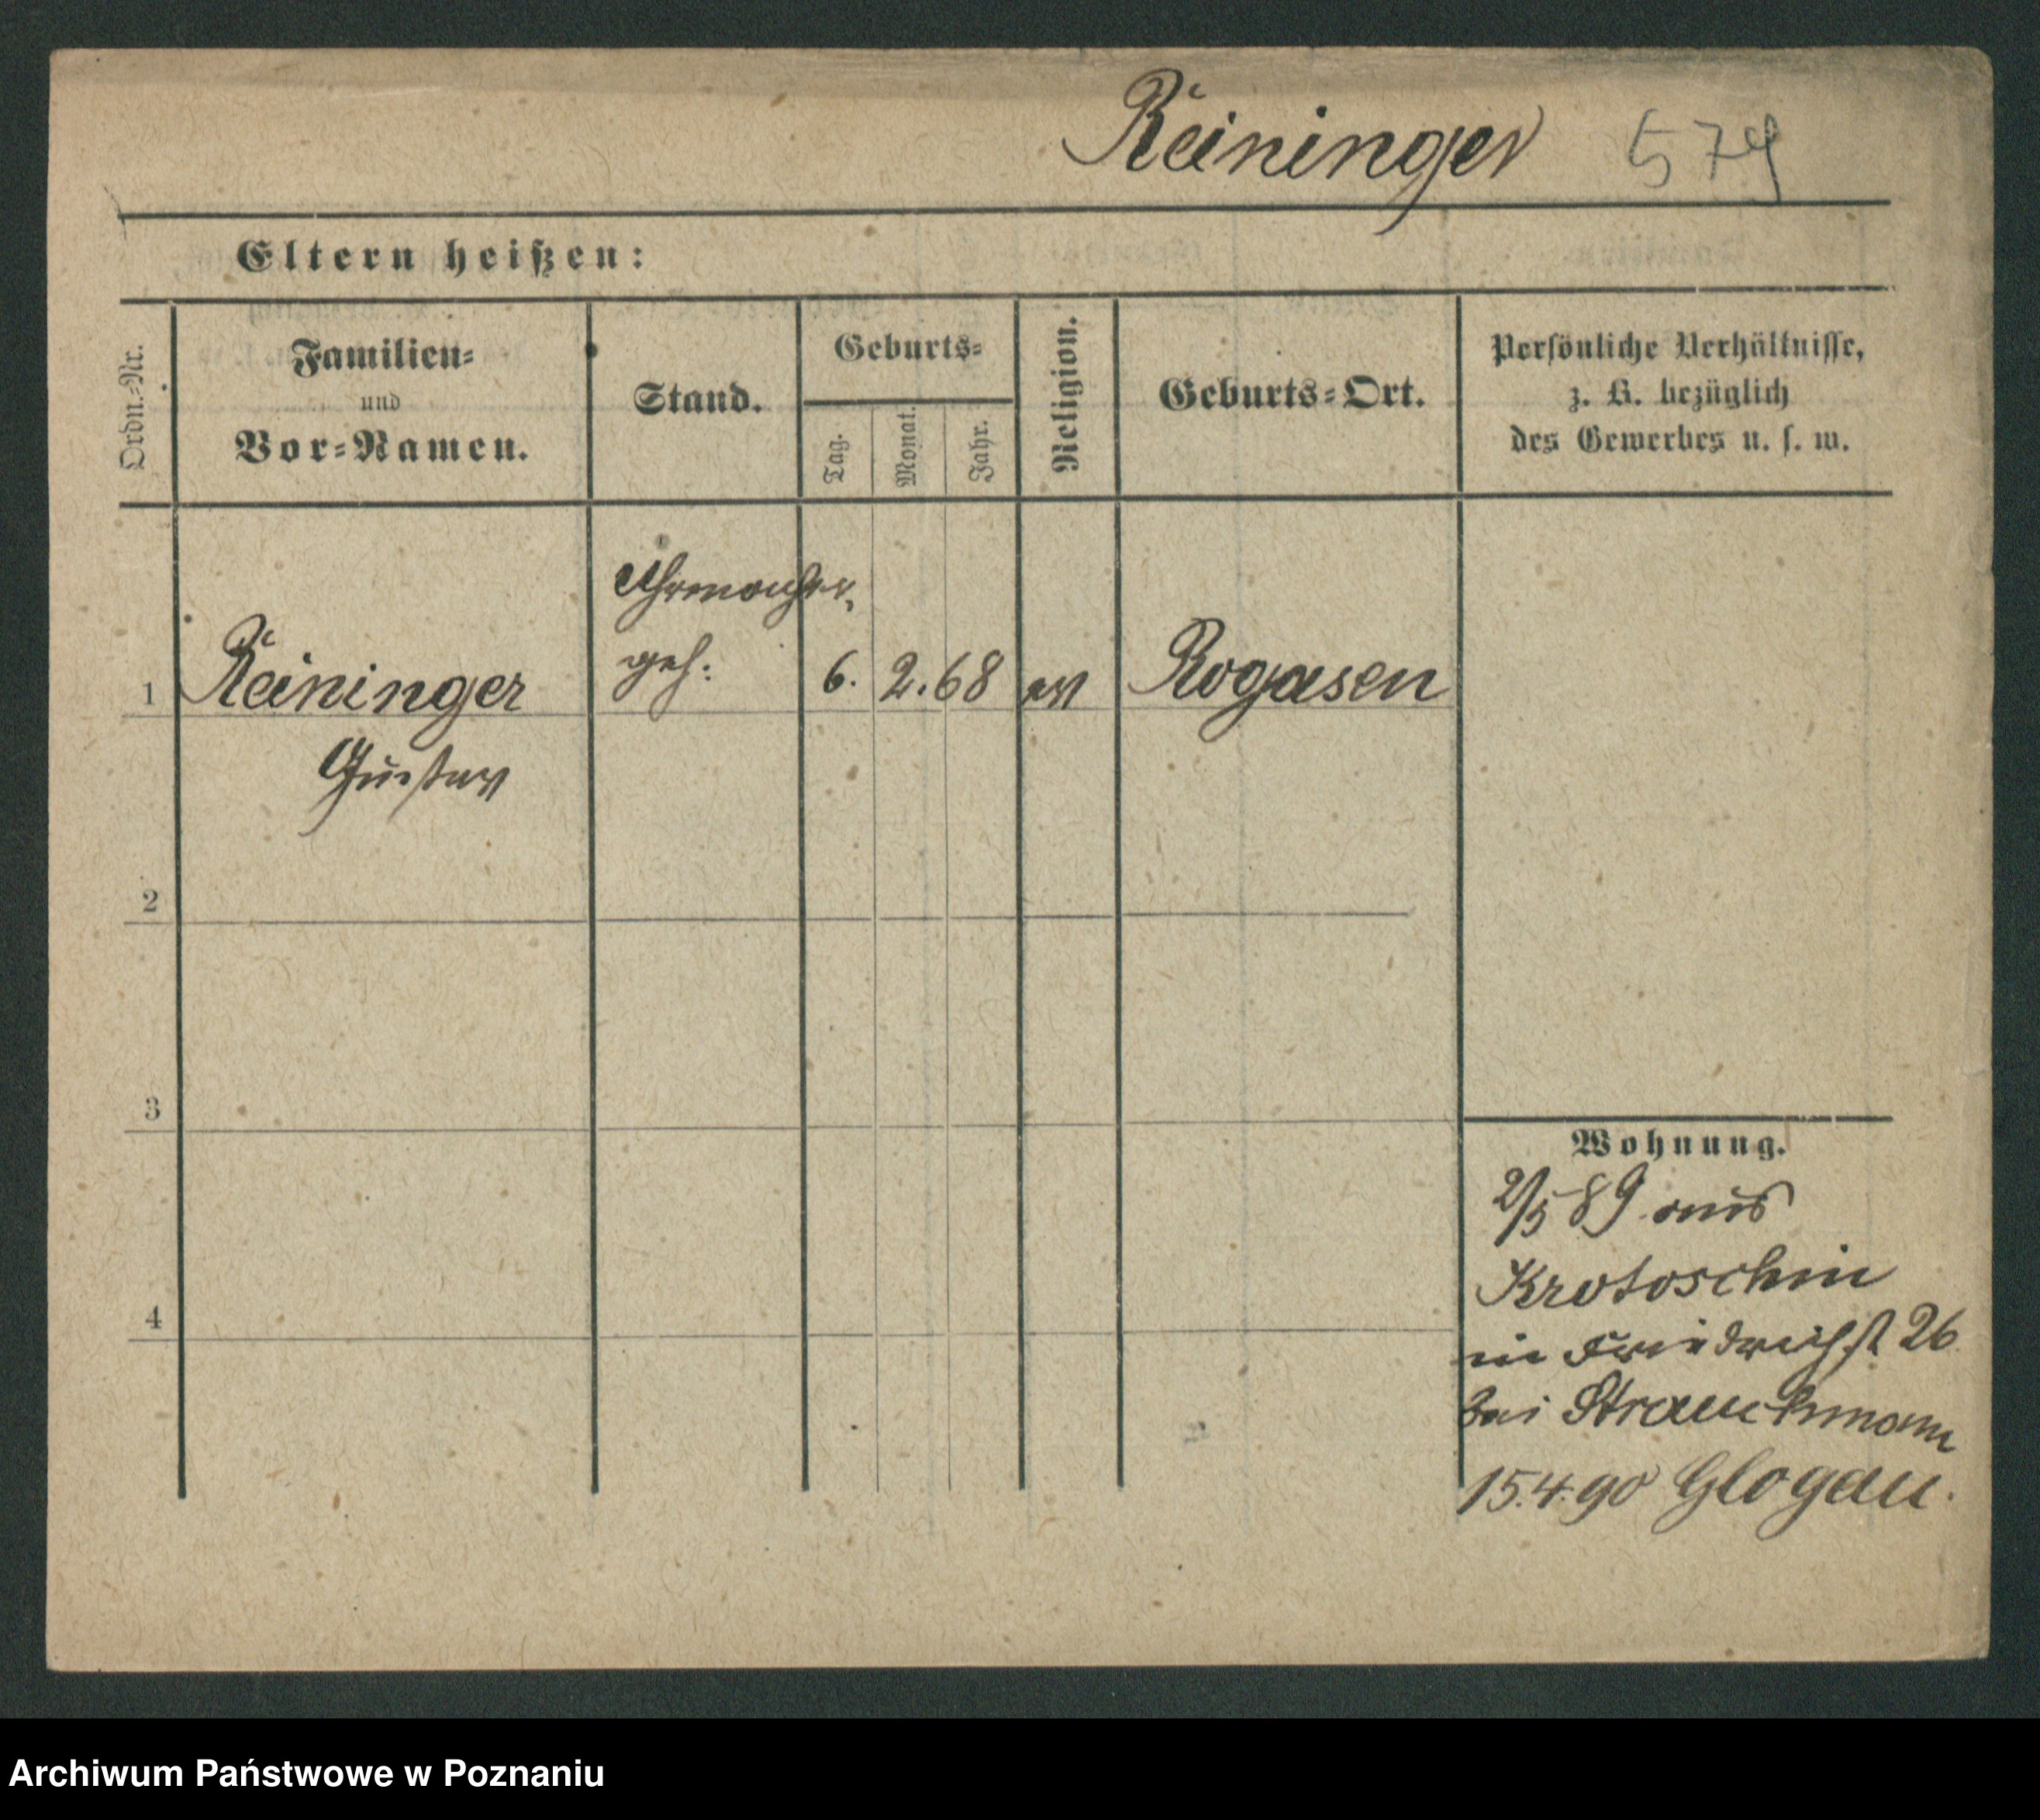 Reininger 579
Eltern heißen:
Ordn.=Nr.
Familien=
und
Vor=Namen.
Stand.
Geburts=
Tag.
Monat.
Jahr.
Religion.
Geburts=Ort.
Persönliche Verhältnisse,
z. B. bezüglich
des Gewerbes u. s. w.
Uhrmacher
geh:
1 Reininger 6. 2. 68 ev Rogasen
Gustav
2
3
4
Wohnung.
2/5 89 aus
Krotoschin
in Friedrichst 26
bei Strauchmann
15.4.90 Glogau.
Archiwum Państwowe w Poznaniu